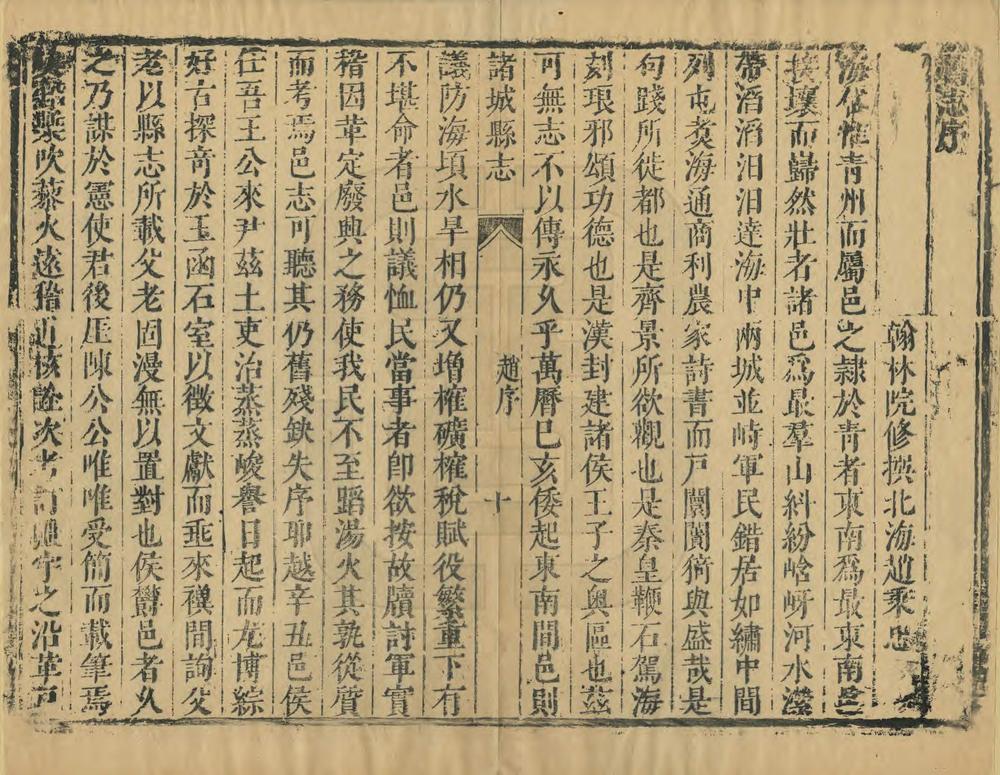 舊志序
翰林院修撰北海趙秉忠
海岱惟青州而屬邑之隸於青者東南為最東南邑
揆壤而巋然壯者諸邑為最羣山糾紛崯岈河水瀠
帶滔滔汨汨達海中兩城並峙軍民錯居如繡中間
列屯煑海通商利農家詩書而戸闤闠猗與盛哉是
句踐所徙都也是齊景所欲觀也是秦皇鞭石駕海
刻琅邪頌功德也是漢封建諸侯王子之輿區也茲
可無志不以傳永久乎萬曆巳亥倭起東南間邑則
諸城縣志
趙序
十
議防海頃水旱相仍又增榷礦榷稅賦役繁重下有
不堪命者邑則議恤民當事者卽欲按故牘討軍實
稽因革定廢興之務使我民不至蹈湯火其孰從質
而考焉邑志可聽其仍舊殘缺失序耶越辛丑邑侯
任吾王公來尹茲土吏治蒸蒸峻譽日起而尤博綜
好古探竒於玉函石室以徵文獻而垂來禩間詢父
老以縣志所載父老固漫無以置對也侯欝邑者久
之乃謀於憲使君後厓陳公公唯唯受簡而載筆焉
吹藜火遠稽近核詮次考訂疆宇之沿革戸